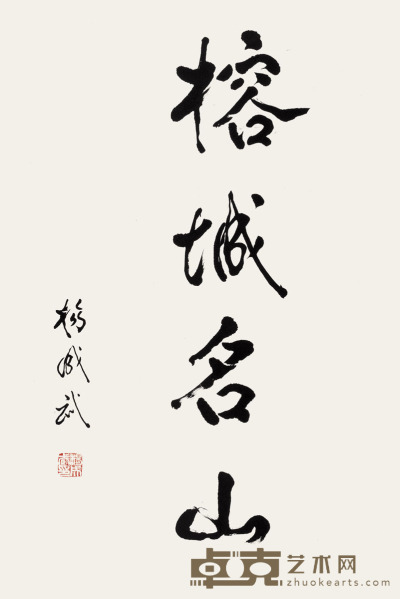 榕城名山
杨成武
卓克艺术网
zhuokearts.com